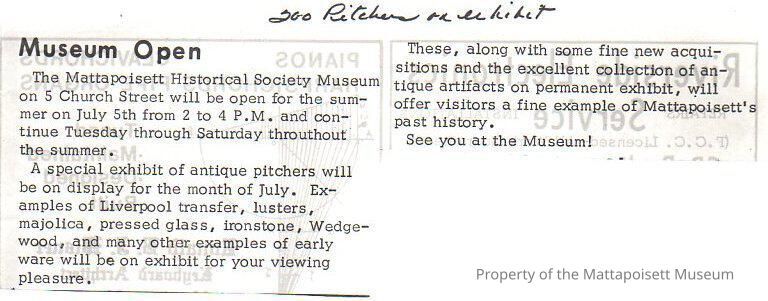 200 Pitchers on exhibit
Museum Open
The Mattapoisett Historical Society Museum
on 5 Church Street will be open for the sum-
mer on July 5th from 2 to 4 P.M. and con-
tinue Tuesday through Saturday throuthout
the summer.
A special exhibit of antique pitchers will
be on display for the month of July. Ex-
amples of Liverpool transfer, lusters,
majolica, pressed glass, ironstone, Wedge-
wood, and many other examples of early
ware will be on exhibit for your viewing
pleasure.
These, along with some fine new acqui-
sitions and the excellent collection of an-
tique artifacts on permanent exhibit, will
offer visitors a fine example of Mattapoisett's
past history.
See you at the Museum!
Property of the Mattapoisett Museum